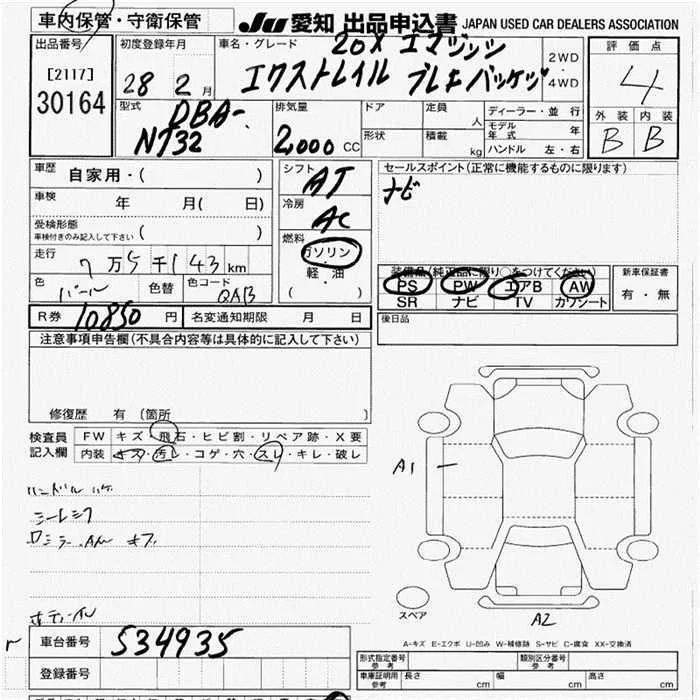 車内保管・守衛保管
JU 愛知 出品申込書 JAPAN USED CAR DEALERS ASSOCIATION
出品番号
[2117]
30164
初度登録年月
28 2月
車名・グレード
20X エマジンシ
エクストレイル ブレキパッケジ
2WD
・
4WD
評価点
4
外装 内装
B B
型式
DBA-
NT32
排気量
2,000 CC
ドア
定員 人
形状
積載 kg
ディーラー・並行
モデル年式 年
ハンドル 左・右
車歴 自家用・( )
車検 年 月( 日)
受検形態
車検付きのみ記入して下さい ( )
走行 7万5千143km
色 パール 色替 色コード QAB
シフト AT
冷房 AC
燃料 ガソリン
・
軽・油
( )
セールスポイント(正常に機能するものに限ります)
ナビ
装備品(純正品に限り○をつけてください)
PS PW エアB AW
SR ナビ TV カワシート
新車保証書
有・無
R券 10850円 名変通知期限 月 日
後日品
注意事項申告欄(不具合内容等は具体的に記入して下さい)
修復歴 有 (箇所 )
検査員記入欄
FW キズ・飛石・ヒビ割・リペア跡・X要
内装 キズ・汚レ・コゲ・穴・スレ・キレ・破レ
ハンドル ハゲ
A1
スペア
A2
A-キズ E-エクボ U-凹み W-補修跡 S-サビ C-腐食 XX-交換済
車台番号 534935
登録番号
形式指定番号 参考
類別区分番号 参考
車庫証明用 参考 長さ cm 幅 cm 高さ cm